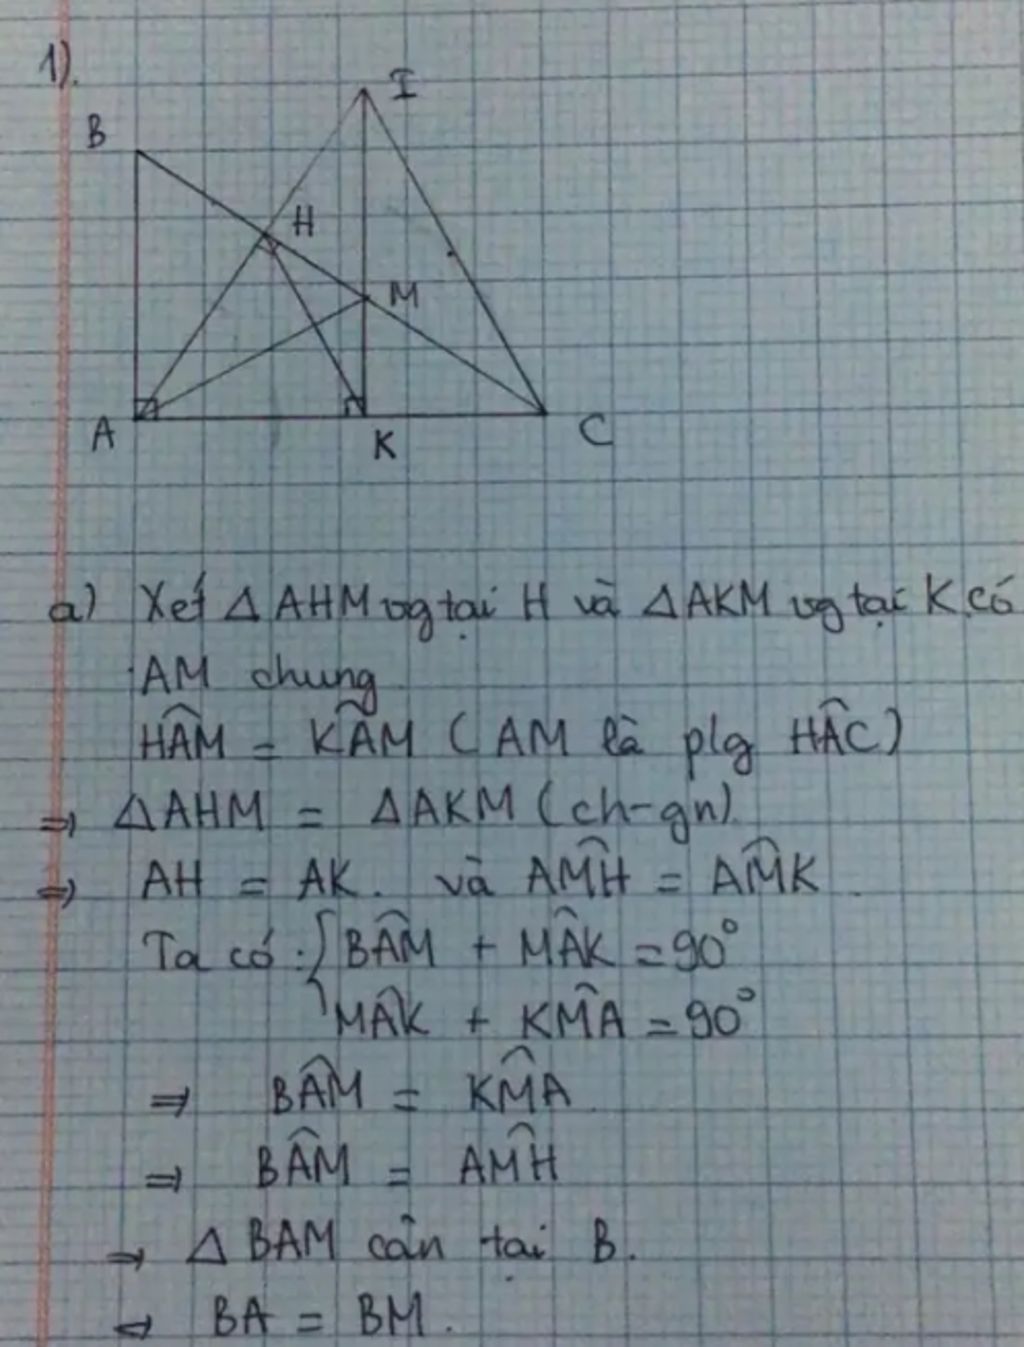 1).
I
B
H
M
A
K
C
a) Xét △AHM vg tại H và △AKM vg tại K có
AM chung
HÂM = KÂM ( AM là plg HÂC)
⇒ △AHM = △AKM (ch-gn)
⇒ AH = AK. và AM̂H = AM̂K.
Ta có: { BÂM + MÂK = 90°
MÂK + KM̂A = 90°
⇒ BÂM = KM̂A
⇒ BÂM = AM̂H
⇒ △ BAM cân tại B.
⇒ BA = BM.